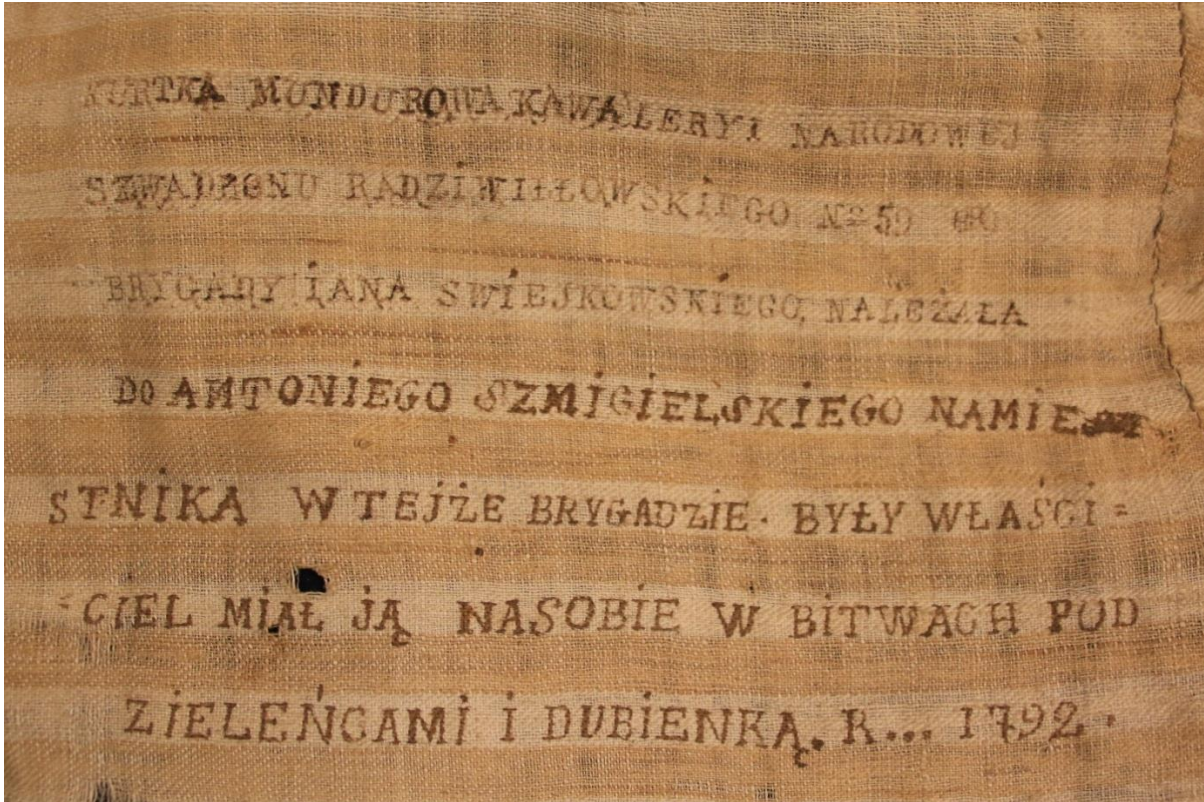 KURTKA MUNDUROWA KAWALERYI NARODOWEJ
SZWADRONU RADZIWIŁŁOWSKIEGO Nº 59
BRYGADY IANA SWIEJKOWSKIEGO, NALEŻAŁA
DO ANTONIEGO SZMIGIELSKIEGO NAMIE
STNIKA W TEJŻE BRYGADZIE. BYŁY WŁAŚCI=
=CIEL MIAŁ JĄ NASOBIE W BITWACH POD
ZIELEŃCAMI I DUBIENKĄ. R... 1792.